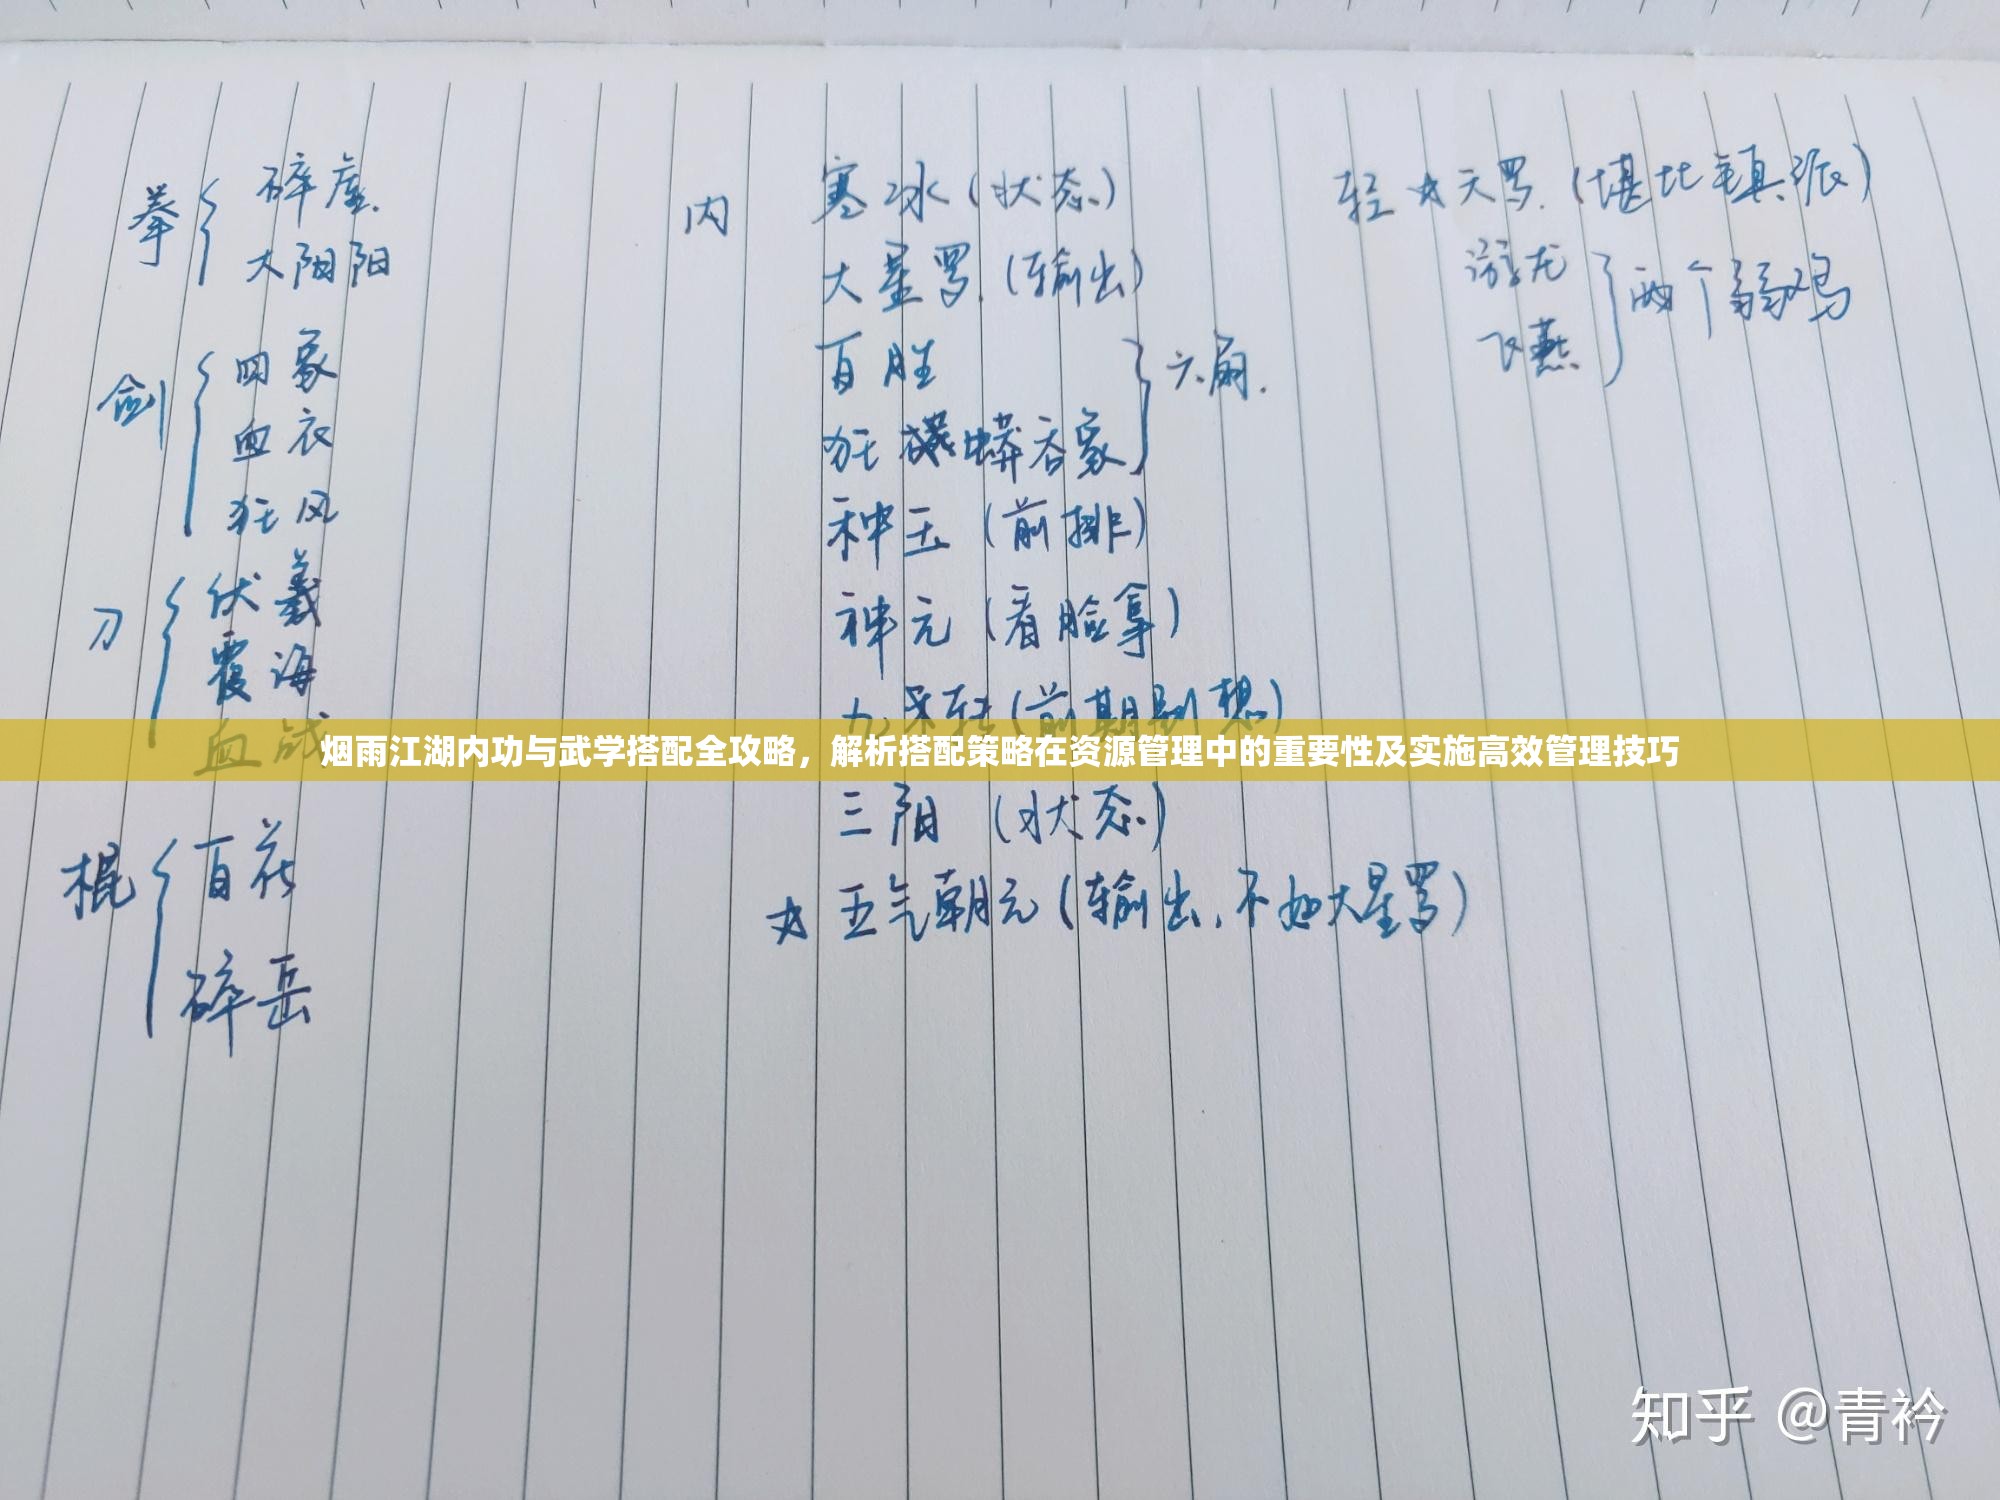 拳
碎虚.
大阴阳
剑
四象
血衣
狂风
刀
伏羲
覆海
血战
棍
百花
碎岳
内
寒冰(状态)
大星罗.(输出)
百胜
狂蟒吞象
六扇.
神玉(前排)
神元(看脸拿)
九转(前期别想)
三阳(状态)
五气朝元(输出,不如大星罗)
轻 天罗.(堪比镇派)
游龙
飞燕
两个弱鸡
烟雨江湖内功与武学搭配全攻略，解析搭配策略在资源管理中的重要性及实施高效管理技巧
知乎 @青衿